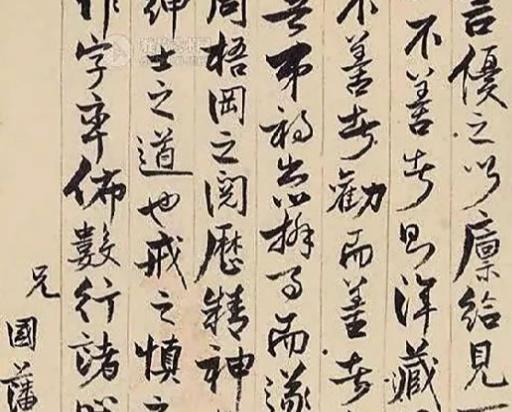 言優之以廩給見一
不善者則渾藏
不善者勸而善者
吾弟初出辦事而遂
周梧岡之閱歷精神
紳士之道也戒之慎之
作字率佈數行諸
兄國藩